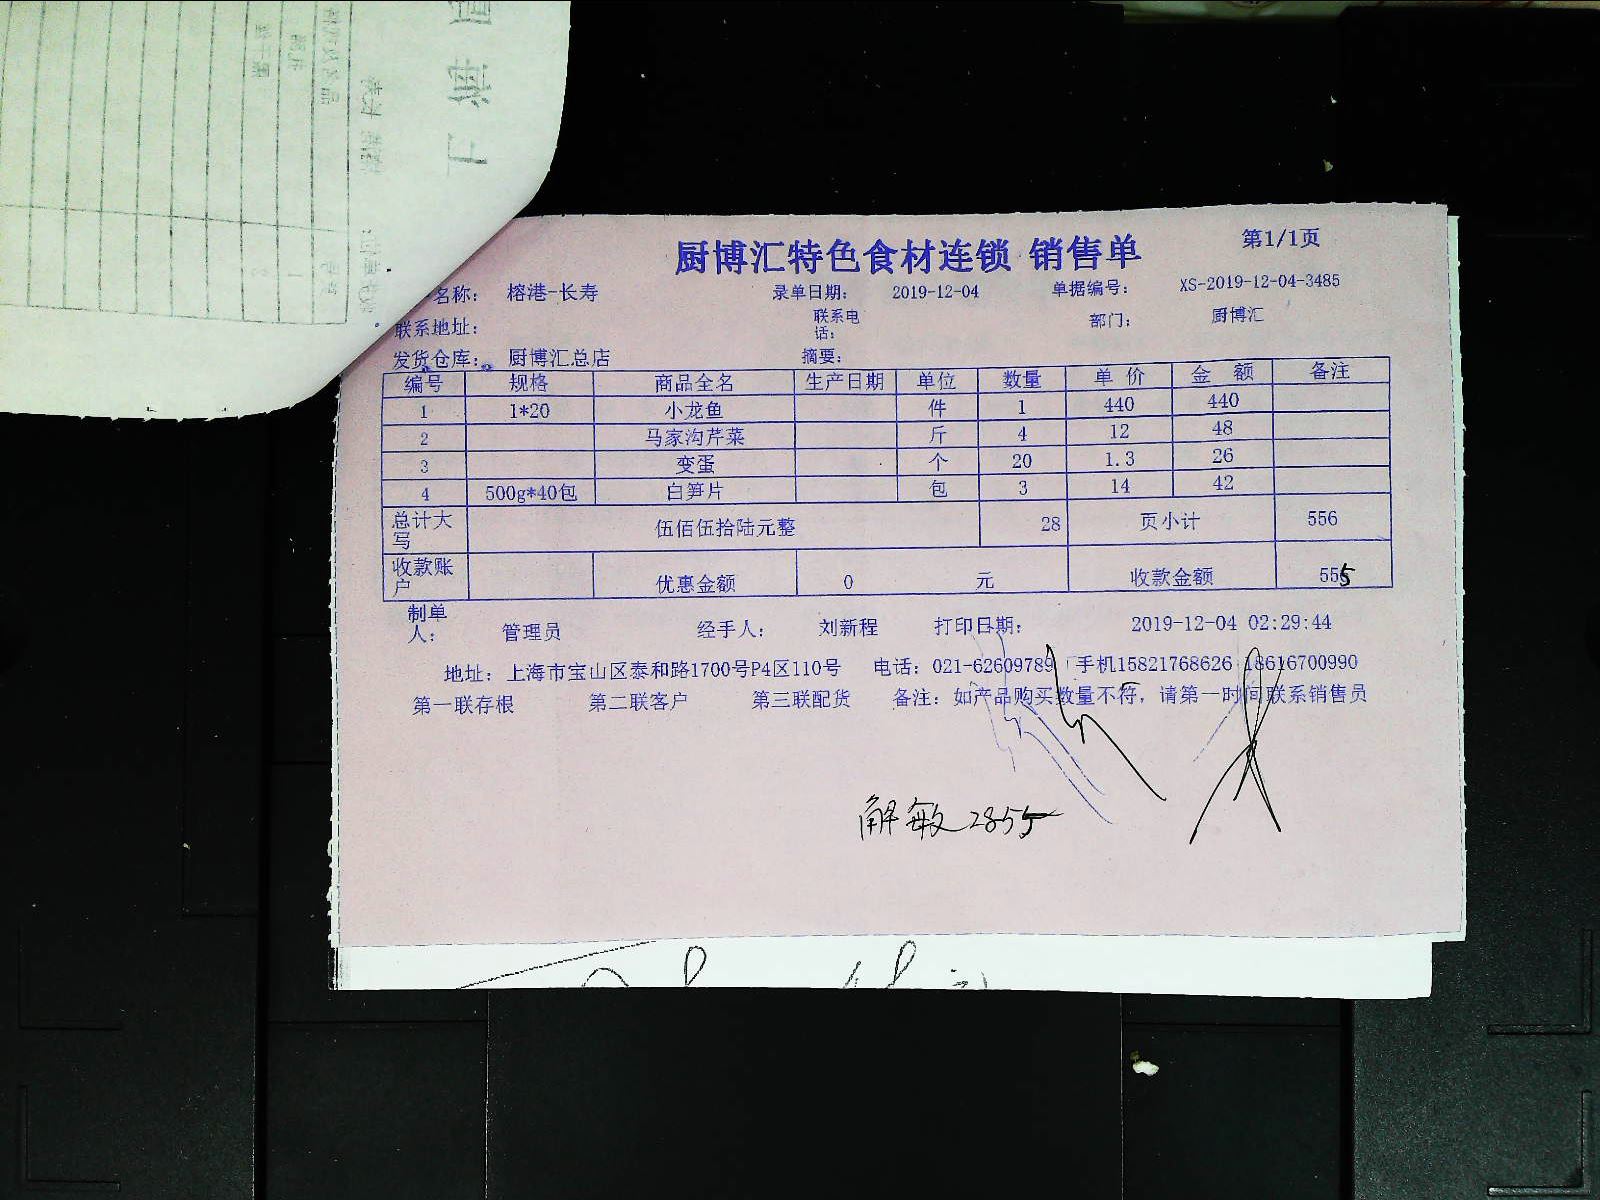 厨博汇特色食材连锁 销售单 第1/1页
名称: 榕港-长寿 录单日期: 2019-12-04 单据编号: XS-2019-12-04-3485
联系地址: 联系电话: 部门: 厨博汇
发货仓库: 厨博汇总店 摘要:
编号 规格 商品全名 生产日期 单位 数量 单 价 金 额 备注
1 1*20 小龙鱼 件 1 440 440
2 马家沟芹菜 斤 4 12 48
3 变蛋 个 20 1.3 26
4 500g*40包 白笋片 包 3 14 42
总计大写 伍佰伍拾陆元整 28 页小计 556
收款账户 优惠金额 0 元 收款金额 555
制单人: 管理员 经手人: 刘新程 打印日期: 2019-12-04 02:29:44
地址: 上海市宝山区泰和路1700号P4区110号 电话: 021-62609789 手机15821768626 18616700990
第一联存根 第二联客户 第三联配货 备注: 如产品购买数量不符, 请第一时间联系销售员
解敏2855